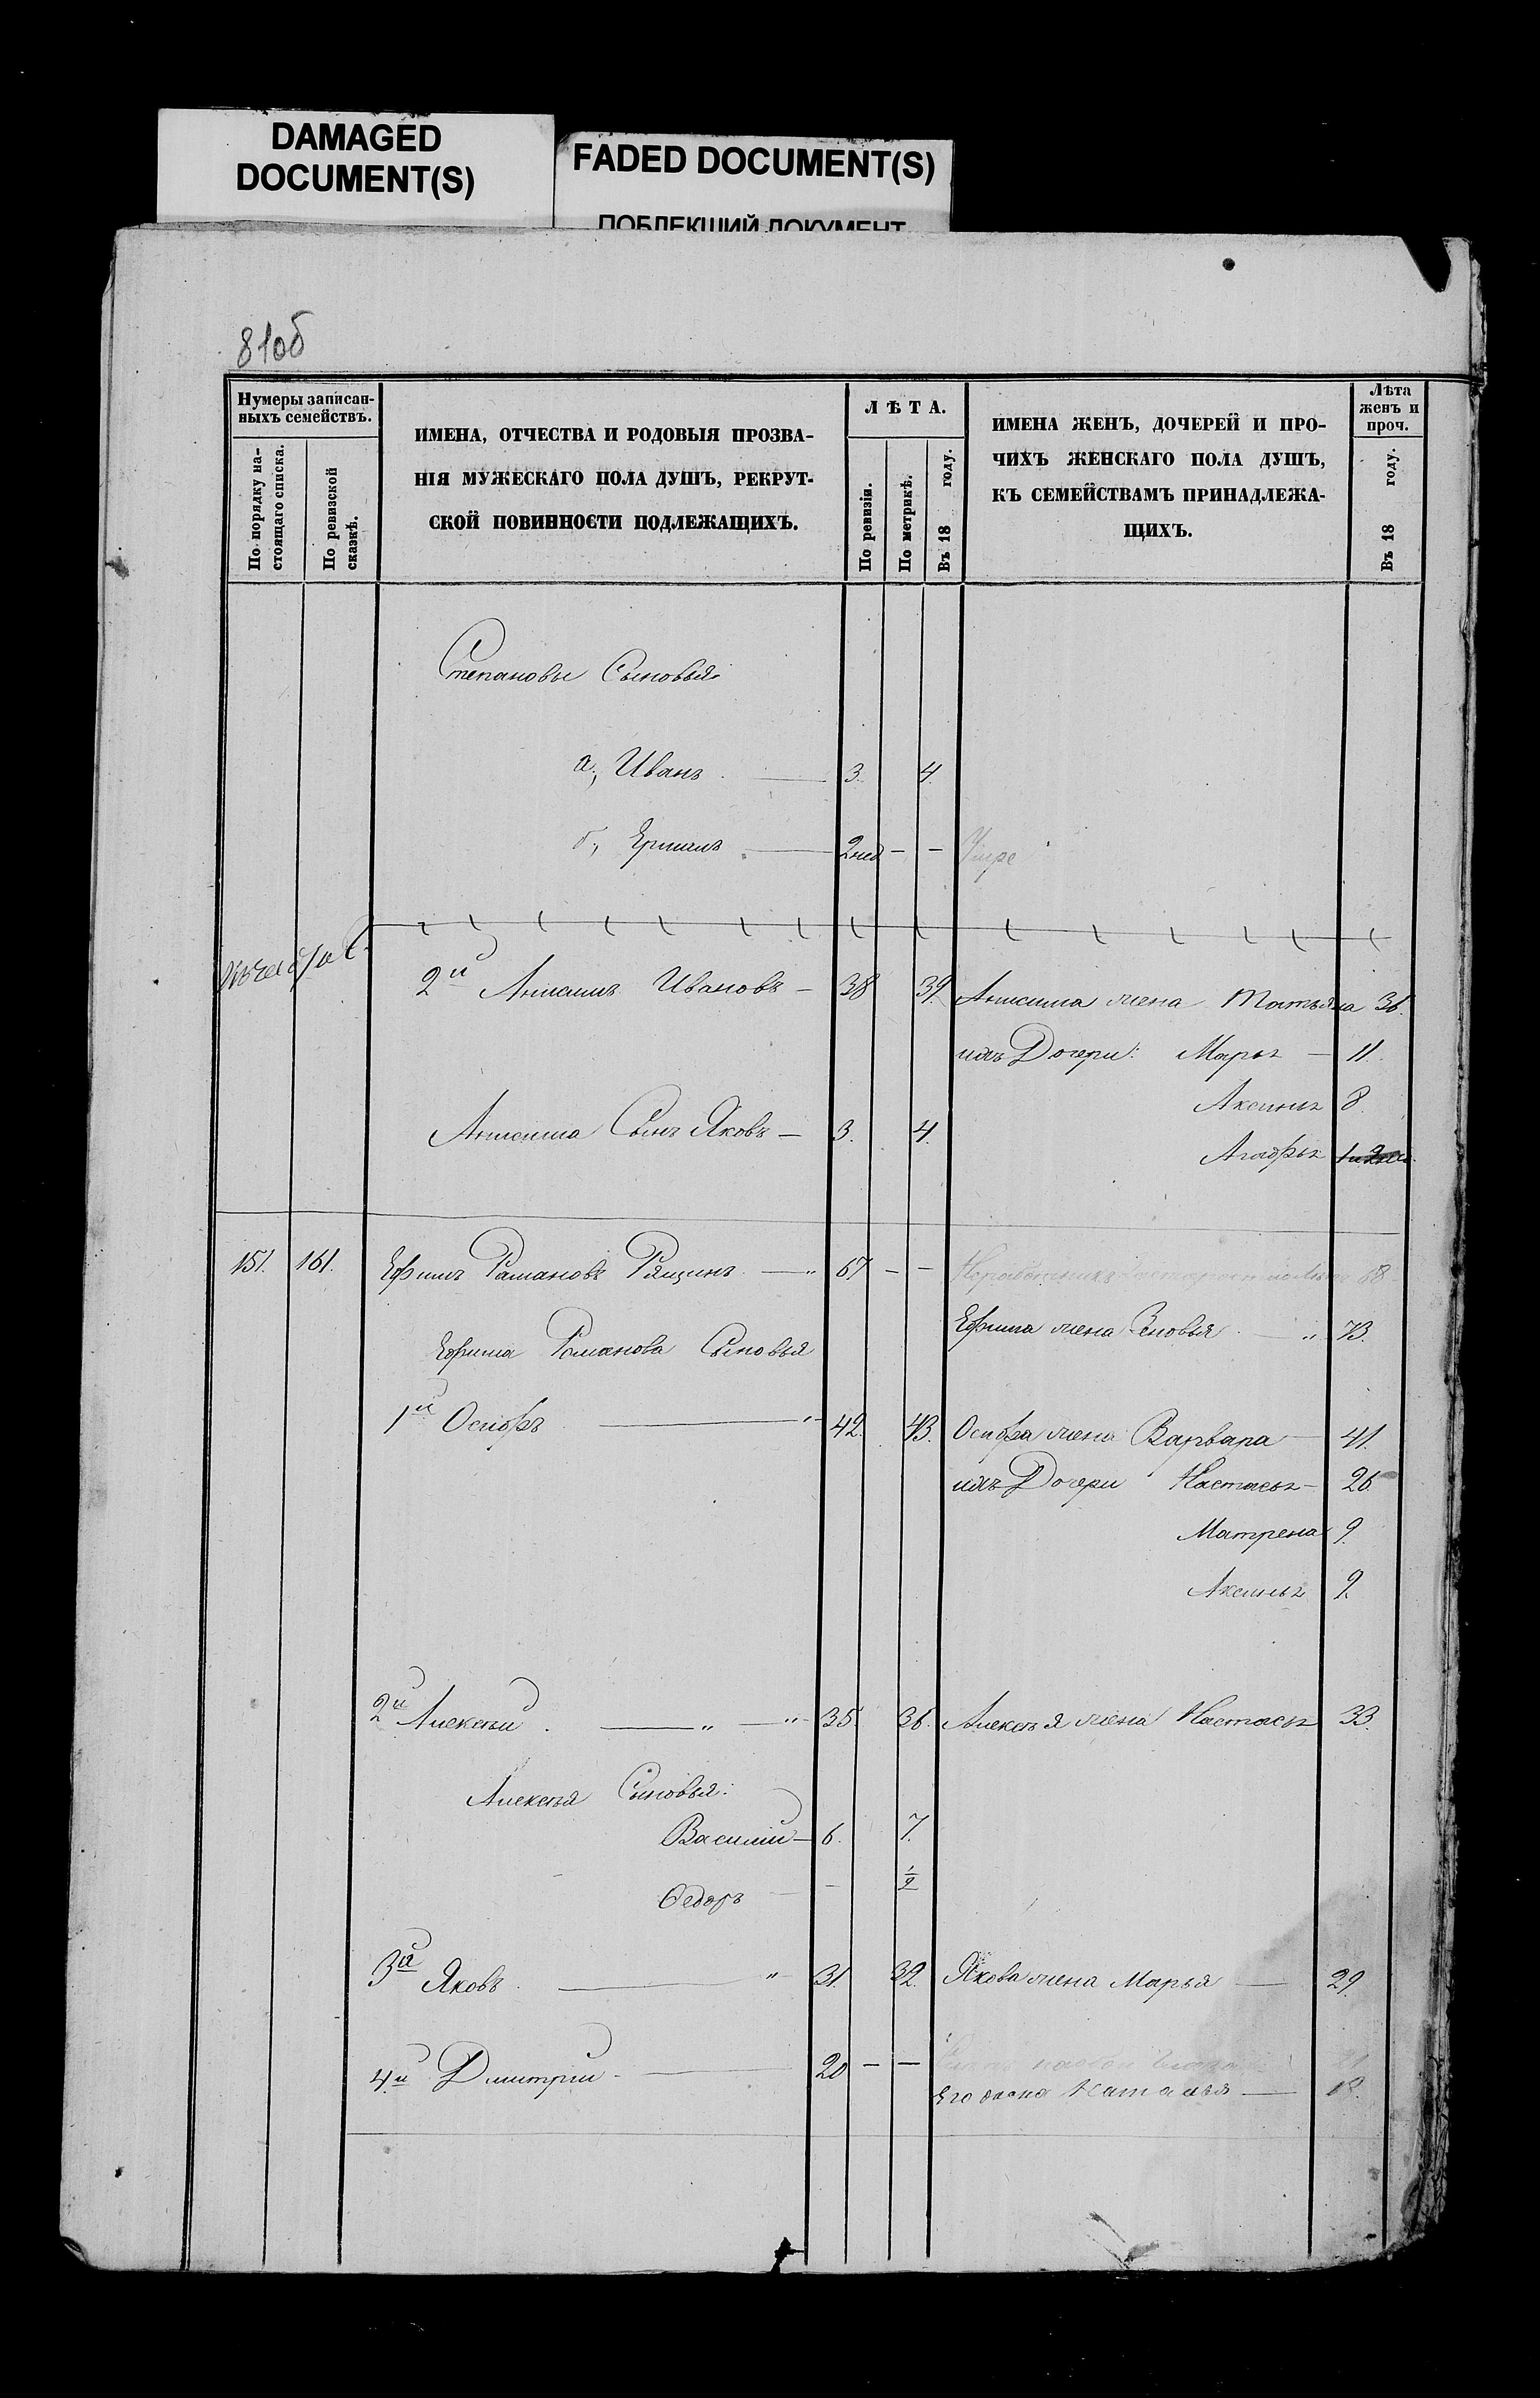 DAMAGED
DOCUMENT(S)
FADED DOCUMENT(S)
ПОБЛЕКШИЙ ДОКУМЕНТ
81об
Нумеры записан-
ныхъ семействъ.
По порядку на-
стоящаго списка.
По ревизской
сказкѣ.
ИМЕНА, ОТЧЕСТВА И РОДОВЫЯ ПРОЗВА-
НІЯ МУЖЕСКАГО ПОЛА ДУШЪ, РЕКРУТ-
СКОЙ ПОВИННОСТИ ПОДЛЕЖАЩИХЪ.
ЛѢТА.
По ревизіи.
По метрикѣ.
Въ 18 году.
ИМЕНА ЖЕНЪ, ДОЧЕРЕЙ И ПРО-
ЧИХЪ ЖЕНСКАГО ПОЛА ДУШЪ,
КЪ СЕМЕЙСТВАМЪ ПРИНАДЛЕЖА-
ЩИХЪ.
Лѣта
женъ и
проч.
Въ 18 году.
Степановы Сыновья
а, Иванъ — 3. 4.
б, — 2нед — — Умре
2й Анисимъ Ивановъ — 38 39. Анисима жена Татьяна 36.
ихъ Дочери: Марья — 11.
Аксинья 8.
Анисима Сынъ Яковъ — 3. 4.
Агафья
151. 161. Ефимъ Романовъ — 67 — — 68
Ефима жена Зеновья — 73.
Ефима Романова Сыновья
1й Осипъ — 42. 43. Осипа жена Варвара — 41.
ихъ Дочери Настасья — 26
Матрена 9.
Аксинья 9.
2й Алексѣй — 35. 36. Алексѣя жена Настасья 33.
Алексѣя Сыновья:
Василий — 6. 7.
Ѳедоръ — — 1/2
3й Яковъ — 31. 32. Якова жена Марья — 29.
4й Дмитрий — 20 — —
Его жена Наталья — 18.